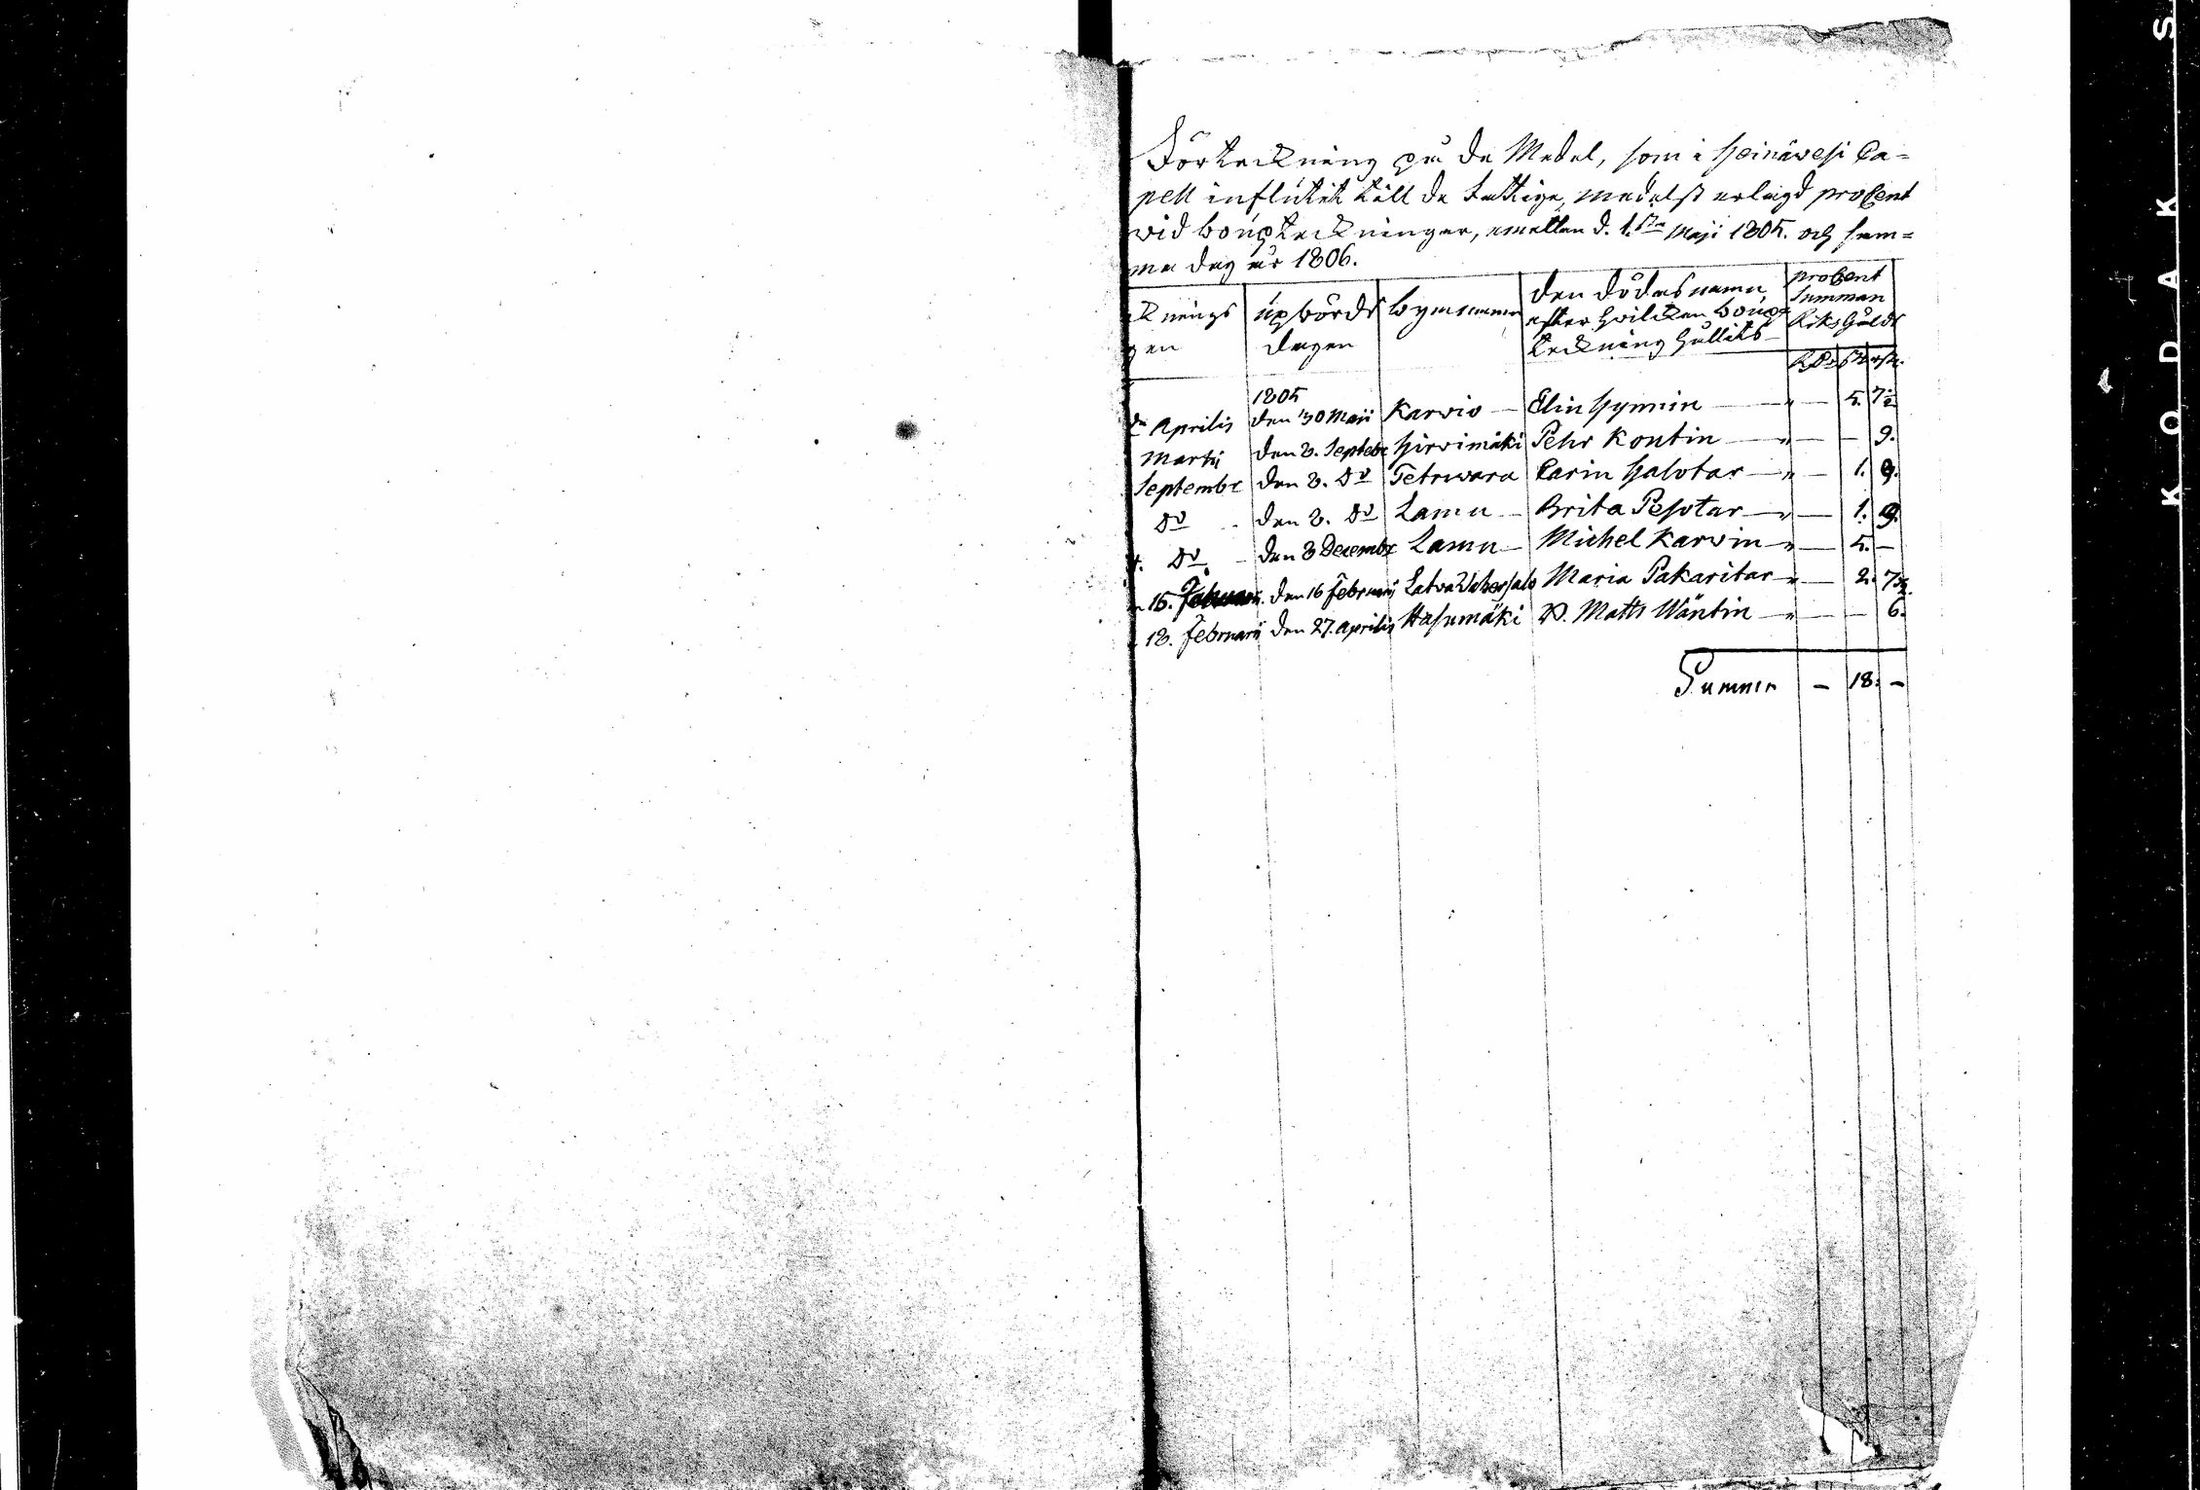 Förteckning på de Medel, som i Heinäwesi Ca=
pell influtit till de fattige, medelst erlagd procent
wid bouptekninger, emellan d. 1.sta Maji 1805. och sam=
ma dag år 1806.
knings
gen
upbörds
dagen
Bynamnen
Den dödas namn,
efter hvilken boup=
teckning hållits
procent
summan
Riks Gälds
RD. sk. rst.
1805
Aprilis den 30 Maii Karwio — Elin Hynnin — " — 5. 7½
Martii den 3. Septebr Hirvimäki Pehr Kontin — " — — 9.
Septembr den 3. Do Petruvara Carin Halotar — " — 1. 9.
Do den 3. Do Lamu — Brita Pesotar — " — 1. 9.
Do den 3 Decembr Lamu — Michel Karvin — " — 5. —
15. den 16 Februarij Maria Pakaritar — " — 2. 7½.
13. Februarij den 27. Aprilis Hasumäki D. Matts Wäntin — " — — 6.
Summa — 18. —
KODAK S